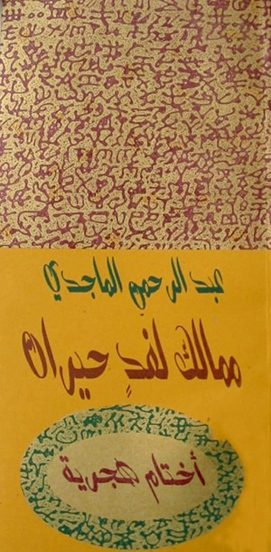 عبد الرحمن الماجدي
ممالك لغدٍ حيران
أختام هجرية